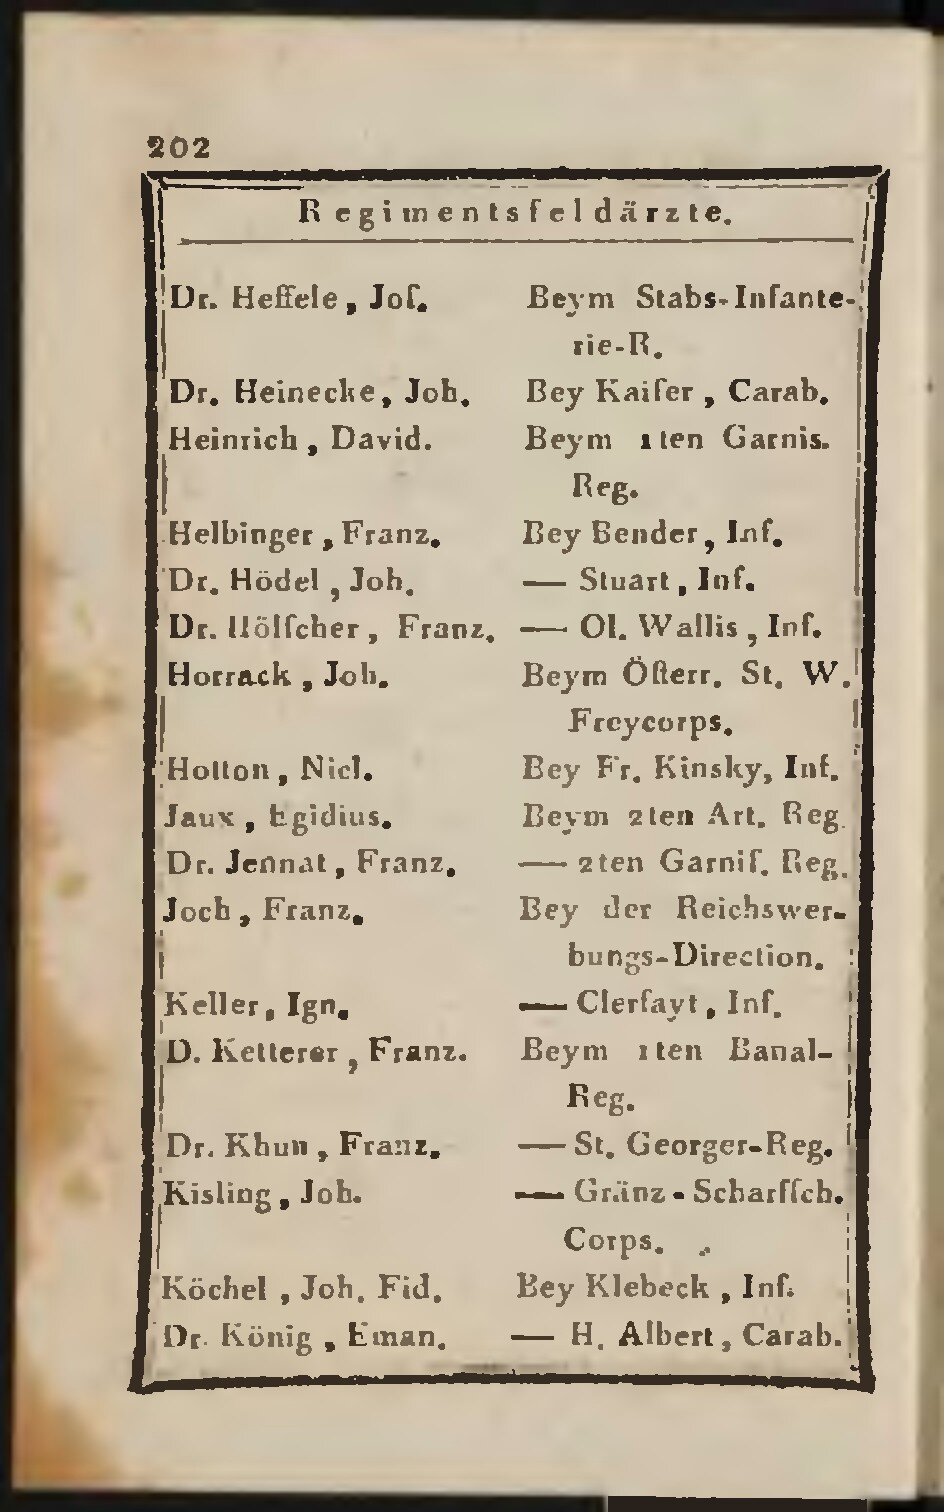 202
Regimentsfeldärzte.
Dr. Heffele, Joſ. Beym Stabs-Infante-
rie-R.
Dr. Heinecke, Joh. Bey Kaiſer, Carab.
Heinrich, David. Beym 1ten Garnis.
Reg.
Helbinger, Franz. Bey Bender, Inf.
Dr. Hödel, Joh. — Stuart, Inf.
Dr. Hölſcher, Franz. — Ol. Wallis, Inf.
Horrack, Joh. Beym Öſterr. St. W.
Freycorps.
Hotton, Nicl. Bey Fr. Kinsky, Inf.
Jaux, Egidius. Beym 2ten Art. Reg.
Dr. Jennat, Franz. — 2ten Garniſ. Reg.
Joch, Franz. Bey der Reichswer-
bungs-Direction.
Keller, Ign. — Clerfayt, Inf.
D. Ketterer, Franz. Beym 1ten Banal-
Reg.
Dr. Khun, Franz. — St. Georger-Reg.
Kisling, Joh. — Gränz-Scharfſch.
Corps.
Köchel, Joh. Fid. Bey Klebeck, Inf.
Dr. König, Eman. — H. Albert, Carab.